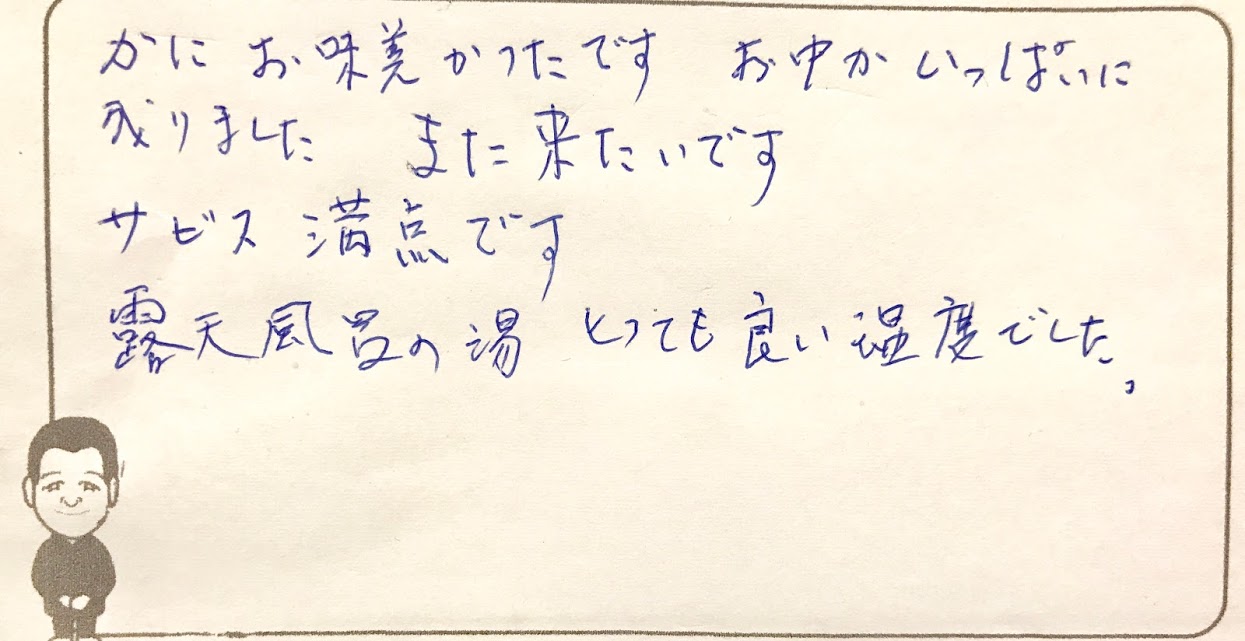 かに お味美かったです お中か いっぱいに
成りました また来たいです
サビス 満点です
露天風呂の湯 とっても良い温度でした。